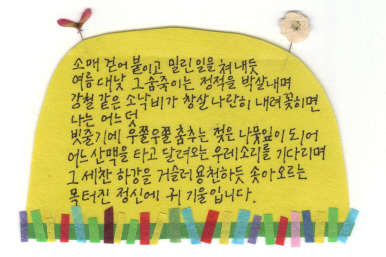 소매 걷어붙이고 밀린 일을 쳐내듯
여름 대낮 그 숨죽이는 정적을 박살내며
강철 같은 소낙비가 창살 나란히 내려 꽂히면
나는 어느덧
빗줄기에 우쭐우쭐 춤추는 젖은 나뭇잎이 되어
어느 산맥을 타고 달려오는 우레소리를 기다리며
그 세찬 하강을 거슬러 용천하듯 솟아오르는
목터진 정신에 귀 기울입니다.